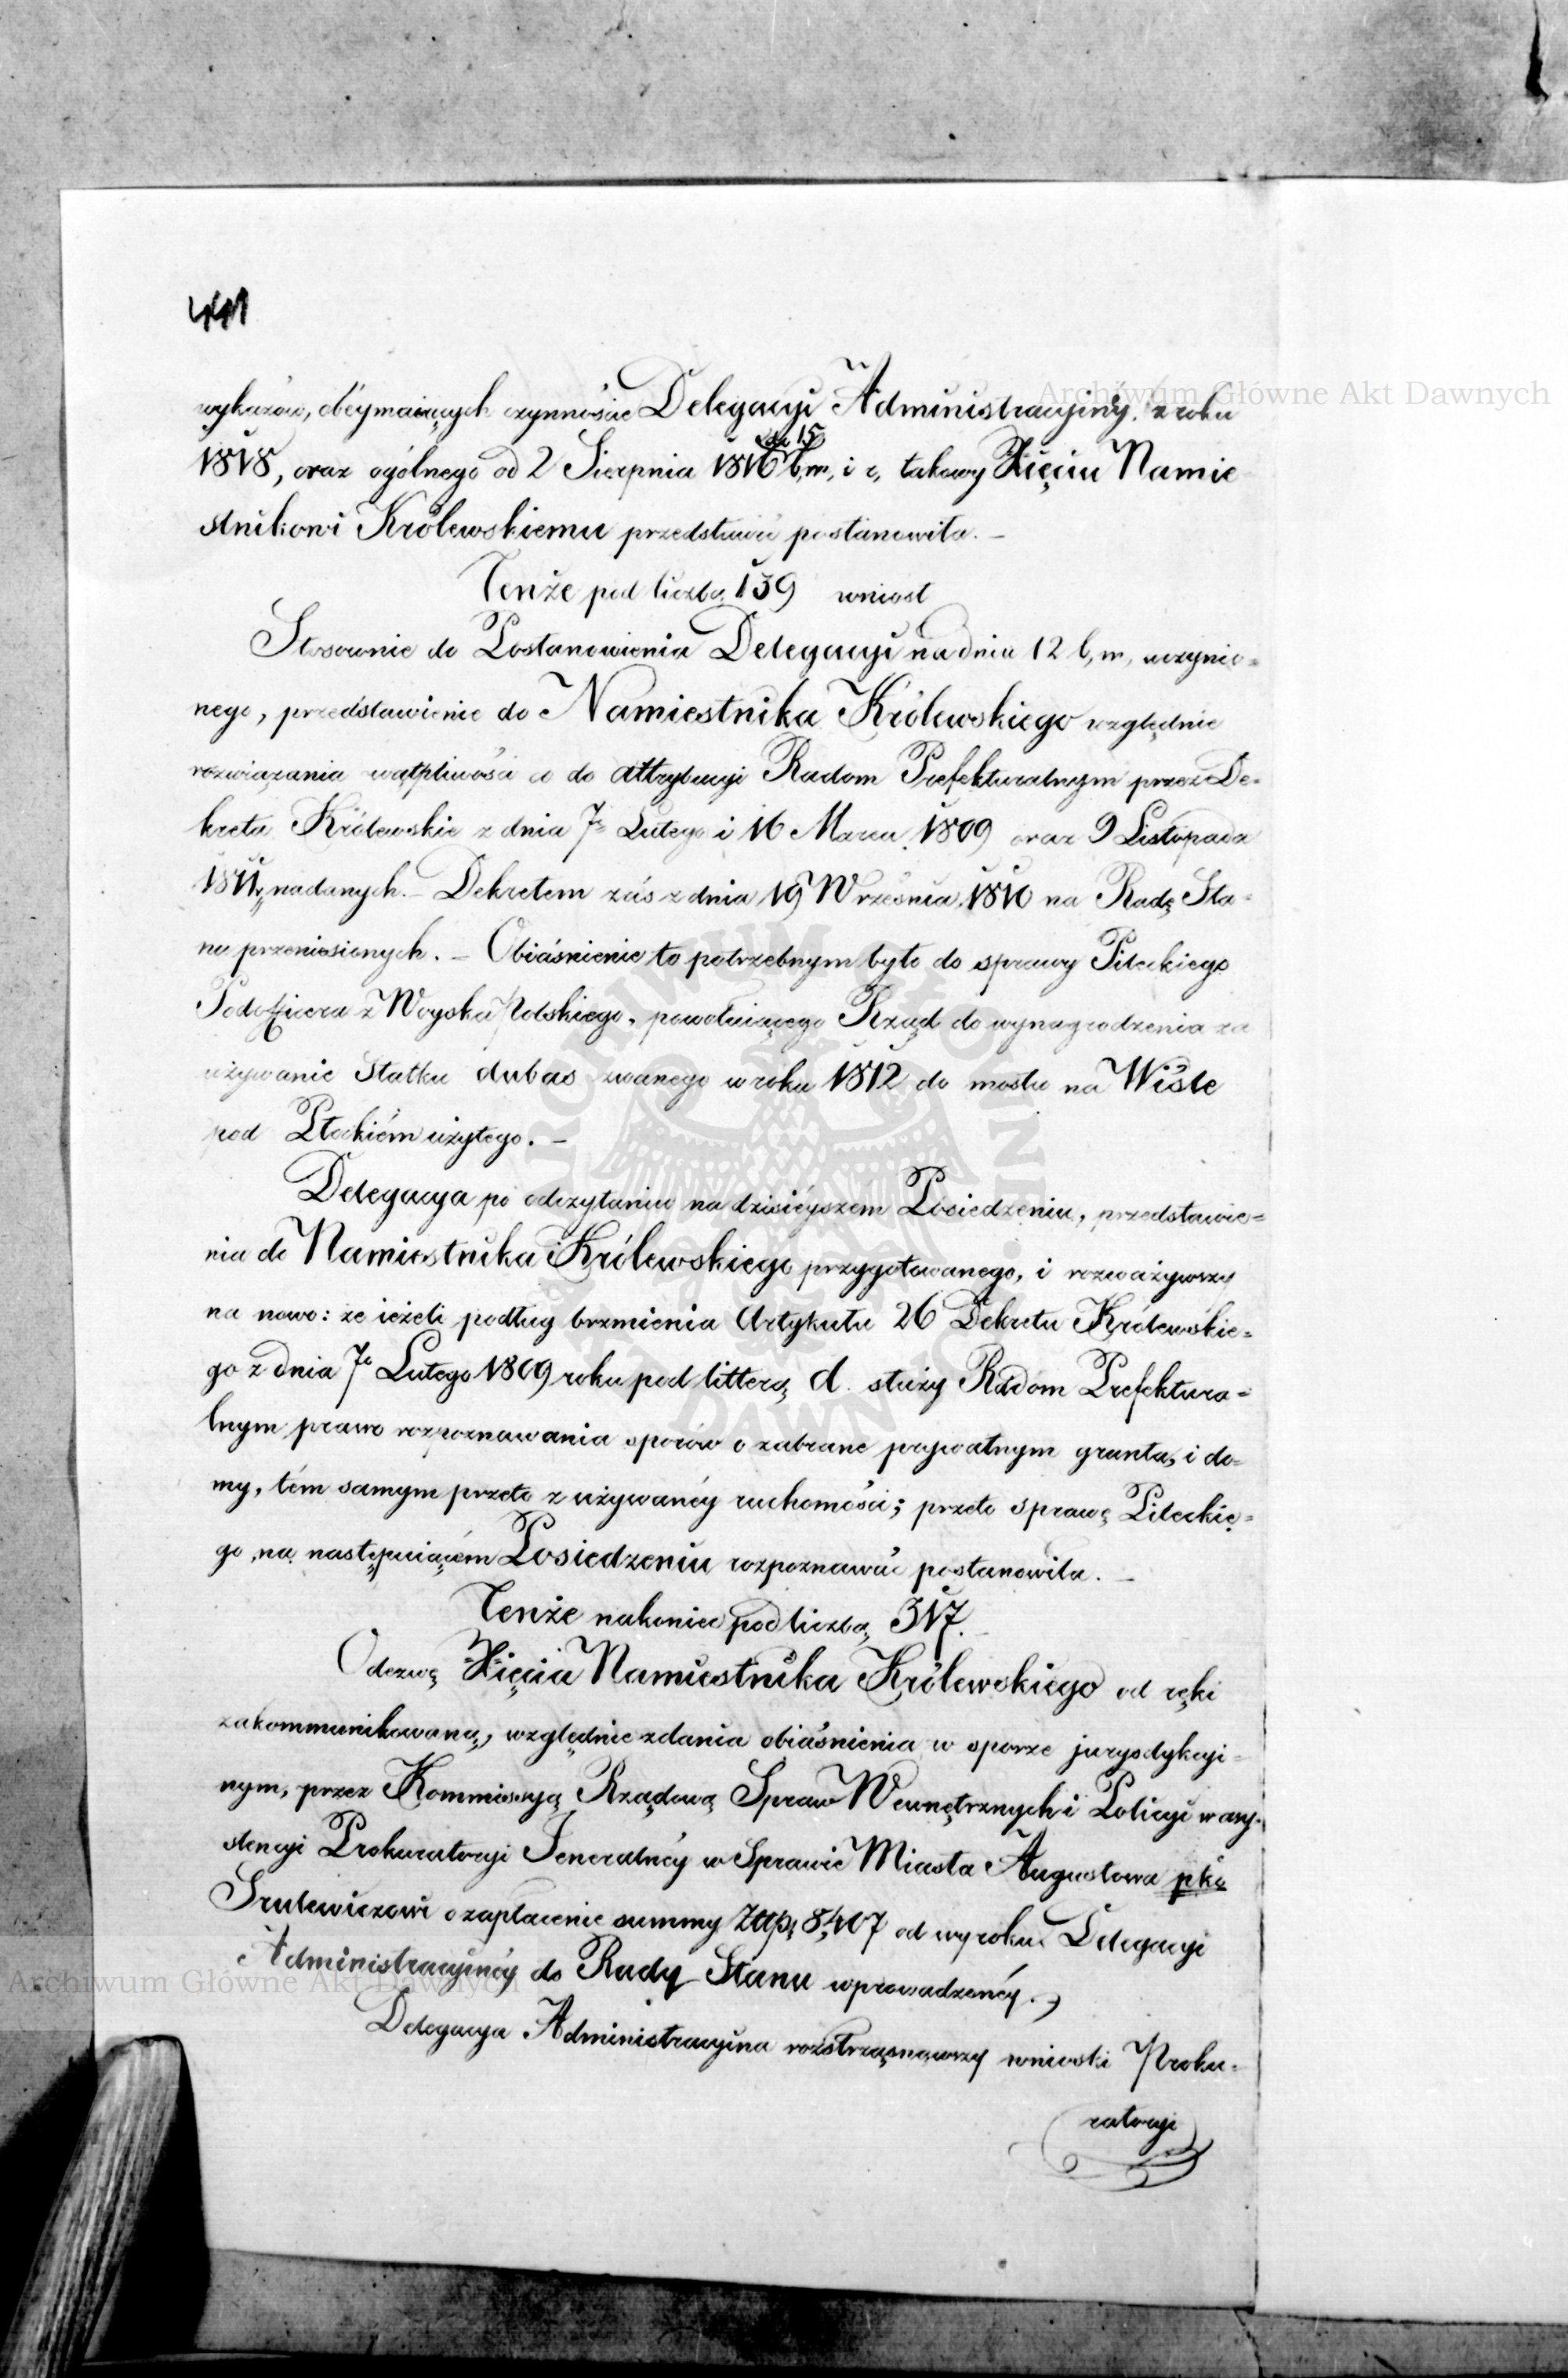 441
wykazów, obeymaiących czynności Delegacyi Administracyiney z roku
do 15
1818, oraz ogólnego od 2 Sierpnia 1816 b, m, i r, takowy Xięciu Namie
stnikowi Królewskiemu przedstawić postanowiła. —
Tenże pod liczbą 139 wniosł
Stosownie do Postanowienia Delegacyi na dniu 12 b, m, uczynio=
nego, przedstawienie do Namiestnika Królewskiego względnie
rozwiązania wątpliwości co do attrybucyi Radom Prefekturalnym przez De=
kreta Królewskie z dnia 7o Lutego i 16 Marca 1809 oraz 9 Listopada
1811, nadanych. — Dekretem zaś z dnia 19 Września 1810 na Radę Sta=
nu przeniesionych. — Obiaśnienie to potrzebnym było do sprawy Pileckiego
Podofficera z Woyska Polskiego, powołuiącego Rząd do wynagrodzenia za
używanie Statku dubas zwanego w roku 1812 do mostu na Wiśle
pod Płockiém użytego. —
Delegacya po odczytaniu na dzisiéyszem Posiedzeniu, przedstawie=
nia do Namiestnika Królewskiego przygotowanego, i rozważywszy
na nowo: że ieżeli podług brzmienia Artykułu 26 Dekretu Królewskie=
go z dnia 7o Lutego 1809 roku pod litterą d. służy Radom Prefektura=
lnym prawo rozpoznawania sporów o zabrane prywatnym grunta, i do=
my, tém samym przeto z używanéy ruchomości; przeto sprawę Pileckie=
go, na następuiącém Posiedzeniu rozpoznawać postanowiła. —
Tenże nakoniec pod liczbą 317. —
Odezwę Xięcia Namiestnika Królewskiego od ręki
zakommunikowaną, względnie zdania obiaśnienia w sporze jurysdykcyi=
nym, przez Kommissyą Rządową Spraw Wewnętrznych i Policyi w asy=
stencyi Prokuratoryi Jeneralnéy w Sprawie Miasta Augustowa pko
Srulewiczowi o zapłacenie summy Złłp, 8,407 od wyroku Delegacyi
Administracyinéy do Rady Stanu wprowadzonéy.
Delegacya Administracyina rozstrząsnąwszy wnioski Proku=
ratoryi
Archiwum Główne Akt Dawnych
Archiwum Główne Akt Dawnych